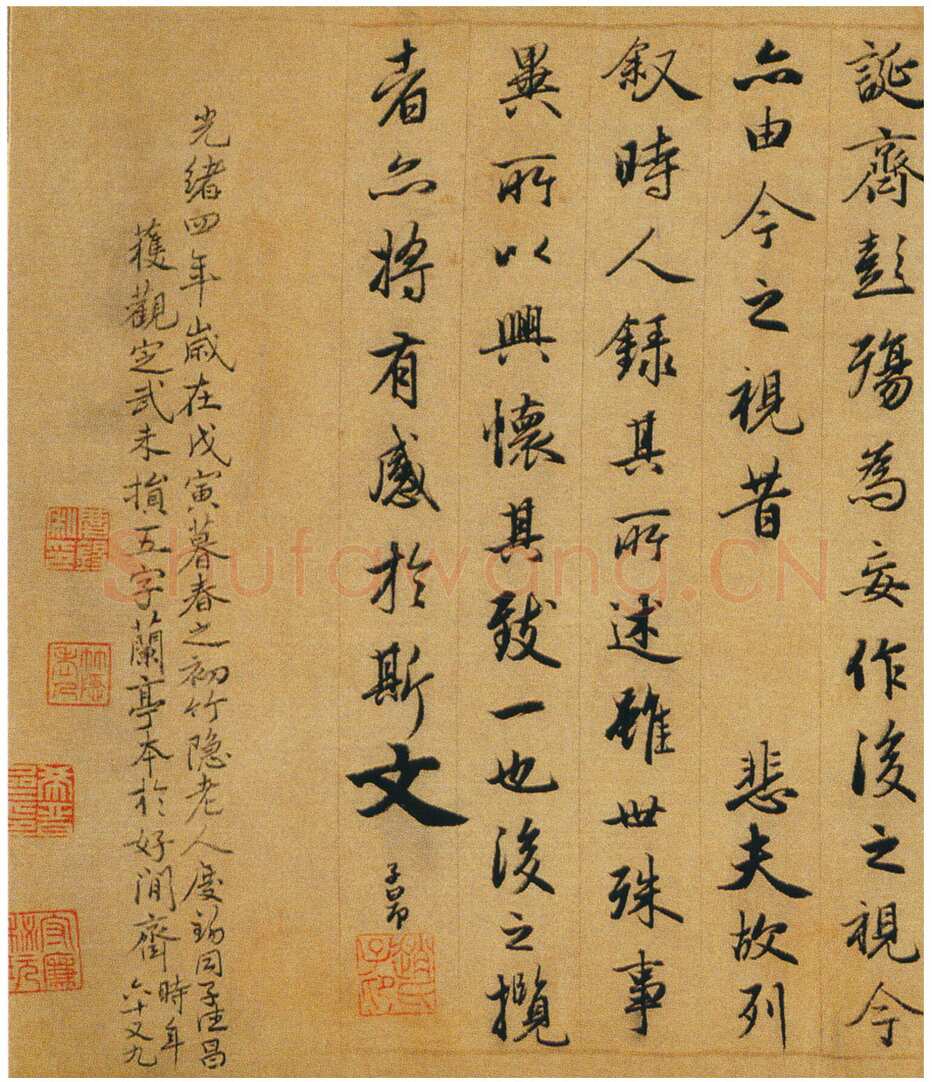 誕齊彭殤為妄作後之視今
亦由今之視昔 悲夫故列
叙時人録其所述雖世殊事
異所以興懷其致一也後之攬
者亦將有感於斯文
子昂
趙氏子昂
光緒四年歲在戊寅暮春之初竹隱老人慶錫同子德昌
獲觀定武未損五字蘭亭本於好閒齋時年
六十又九
Shufawang.CN